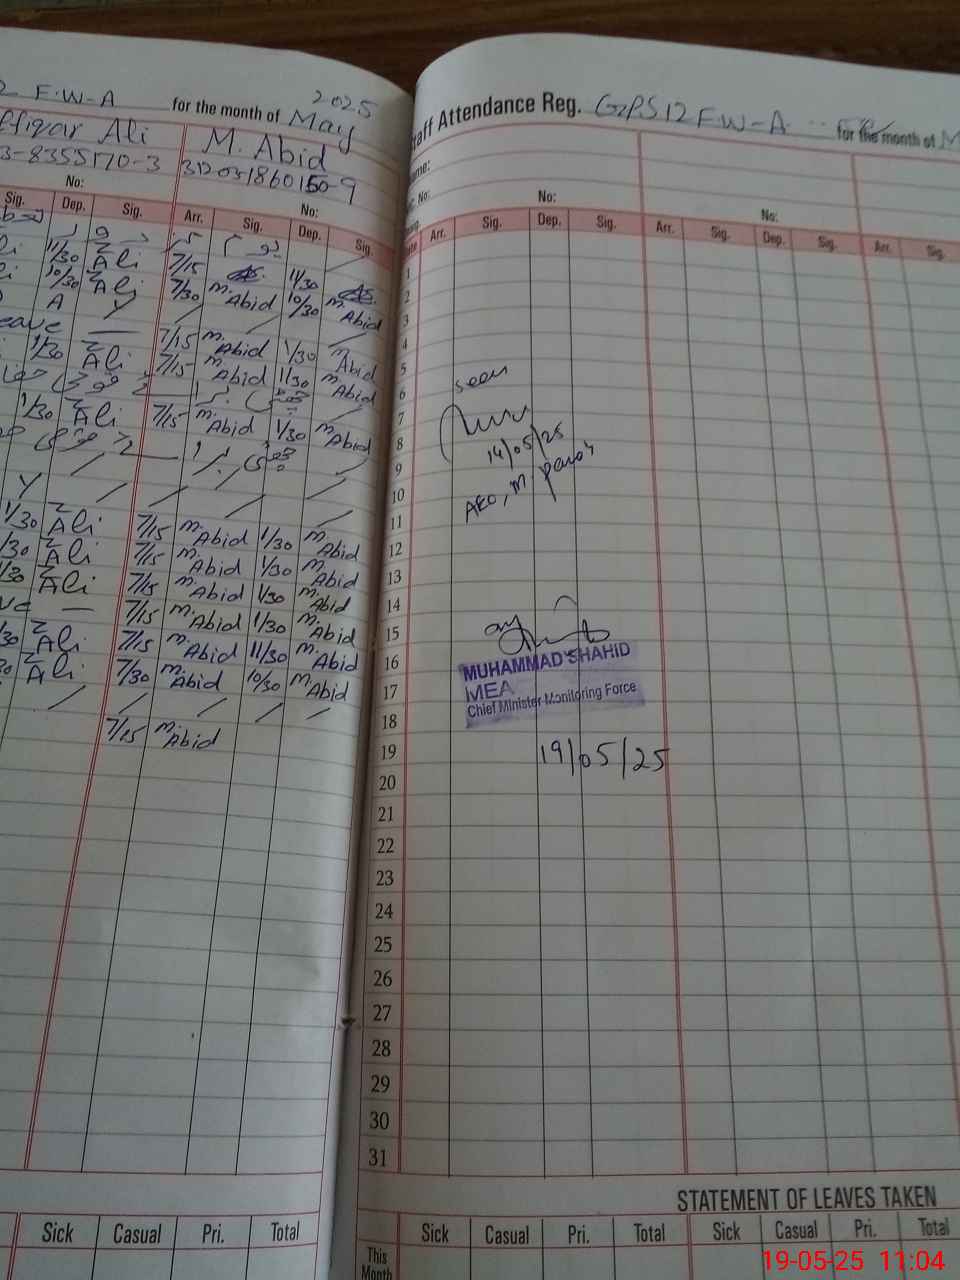 2 F.W-A for the month of May 2025
ffiqar Ali M. Abid
3-8355170-3 312031860150-9
No: No:
Sig. Dep. Sig. Arr. Sig. Dep. Sig.
11/30 Ali 7/15 11/30
10/30 Ali 7/30 M. Abid 10/30 M. Abid
A
eave — 7/15 M. Abid 1/30 M. Abid
1/30 Ali 7/15 M. Abid 11/30 M. Abid
1/30 Ali 7/15 M. Abid 1/30 M. Abid
1/30 Ali 7/15 M. Abid 1/30 M. Abid
1/30 Ali 7/15 M. Abid 1/30 M. Abid
1/30 Ali 7/15 M. Abid 1/30 M. Abid
ve — 7/15 M. Abid 11/30 M. Abid
1/30 Ali 7/15 M. Abid 11/30 M. Abid
30 Ali 7/30 M. Abid 10/30 M. Abid
7/15 M. Abid
Sick Casual Pri. Total
taff Attendance Reg. GPS 12 F.W-A for the month of M
me:
No:
No: No:
Arr. Sig. Dep. Sig. Arr. Sig. Dep. Sig. Arr. Sig.
1
2
3
4
5
6 seen
7
8 14/05/25
9 AEO, M.
10
11
12
13
14
15
16 MUHAMMAD SHAHID
17 MEA
Chief Minister Monitoring Force
18
19 19/05/25
20
21
22
23
24
25
26
27
28
29
30
31
STATEMENT OF LEAVES TAKEN
Sick Casual Pri. Total Sick Casual Pri. Total
This Month
19-05-25 11:04